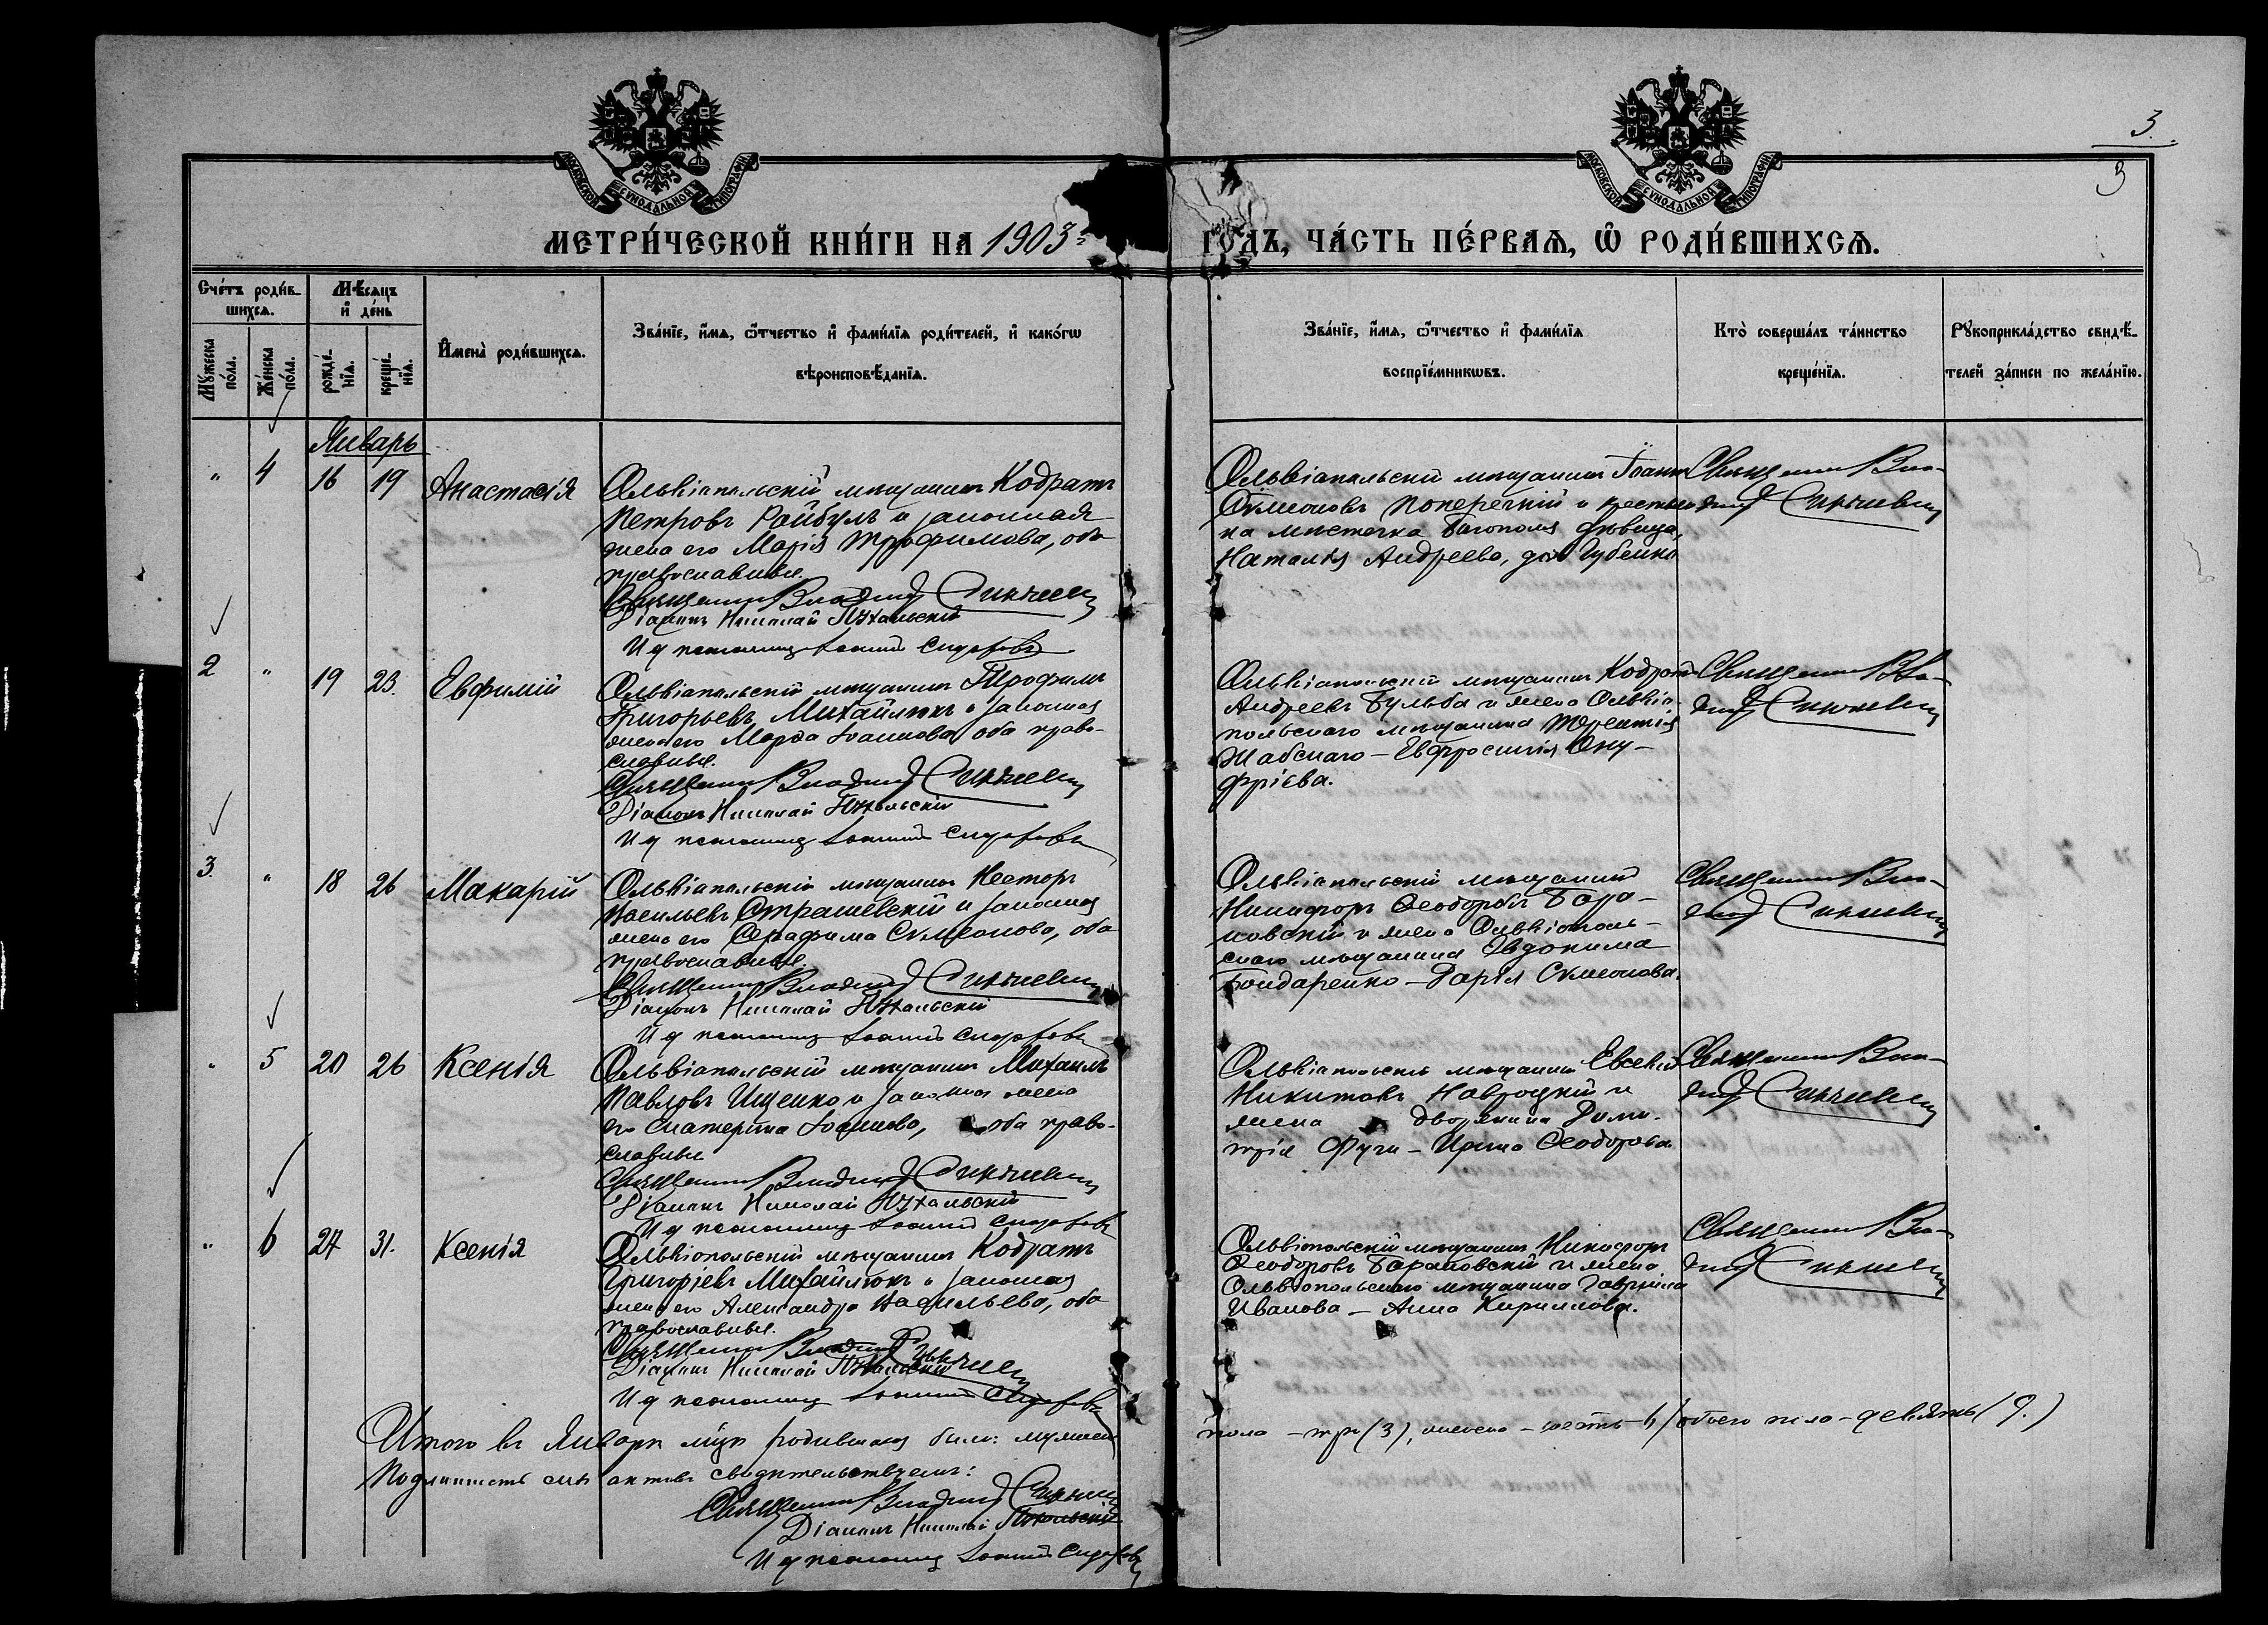 3.
3
МОСКОВСКОЙ СѴНОДАЛЬНОЙ ТИПОГРАФІИ
МОСКОВСКОЙ СѴНОДАЛЬНОЙ ТИПОГРАФІИ
МЕТРИ́ЧЕСКОЙ КНИ́ГИ НА 1903
ГОДЪ, ЧА́СТЬ ПЕ́РВАѦ, Ѿ РОДИ́ВШИХСѦ.
Счéтъ роди́в-
шихсѧ.
Мꙋ́жеска по́ла.
Же́нска по́ла.
Мѣ́сѧцъ
и҆ де́нь
рожде́-
нїѧ.
креще́-
нїѧ.
И҆мена̀ роди́вшихсѧ.
Зва́нїе, и҆́мѧ, ѻ҆́тчество и҆ фами́лїѧ роди́телей, и҆ како́гѡ
вѣроисповѣ́данїѧ.
Зва́нїе, и҆́мѧ, ѻ҆́тчество и҆ фами́лїѧ
воспрїе́мникѡвъ.
Кто̀ соверша́лъ та́инство
креще́нїѧ.
Рꙋкоприкла́дство свидѣ́-
телей за́писи по жела́нїю.
Январь
" 4 16 19 Анастасія
Ольвіопольскій мѣщанинъ Кодратъ
Петровъ Райбулъ и законная
жена его Марія Трофимова, оба
православные.
Священникъ Владимір
Діаконъ Николай
И д псаломщ Іоаннъ Сидоровъ
Ольвіопольскій мѣщанинъ Іоаннъ
Сѵмеоновъ Поперечній и крестьян
ка мѣстечка Богополя дѣвица,
Наталія Андреева, Губенко
Священникъ Вла-
димір
2 " 19 23. Евфимій
Ольвіопольскій мѣщанинъ Трофимъ
Григорьевъ Михайлюкъ и законная
жена его Марѳа Іоаннова, оба право-
славные.
Священникъ Владимір
Діаконъ Николай
И д псаломщ Іоаннъ Сидоровъ
Ольвіопольскій мѣщанинъ Кодратъ
Андреевъ Бульба и жена Ольвіо-
польскаго мѣщанина Терентія
Жабскаго - Евфросинія Ону-
фріева.
Священникъ Вла-
димір
3. " 18 26 Макарій
Ольвіопольскій мѣщанинъ Несторъ
Васильевъ Страшевскій и законная
жена его Серафима Сѵмеонова, оба
православные.
Священникъ Владимір
Діаконъ Николай
И д псаломщ Іоаннъ Сидоровъ
Ольвіопольскій мѣщанинъ
Никифоръ Ѳеодоровъ Бара-
новскій и жена Ольвіополь-
скаго мѣщанина Евдокима
Бондаренко - Дарія Сѵмеонова.
Священникъ Вла-
димір
" 5 20 26 Ксенія
Ольвіопольскій мѣщанинъ Михаилъ
Павловъ Ищенко и законная жена
его Екатерина Іоаннова, оба право-
славные
Священникъ Владимір
Діаконъ Николай
И д псаломщ Іоаннъ Сидоровъ
Ольвіопольскій мѣщанинъ Евсевій
Никитовъ Навроцкій и
жена дворянина Дими-
трія Фучи - Ирина Ѳеодорова
Священникъ Вла-
димір
" 6 27 31. Ксенія
Ольвіопольскій мѣщанинъ Кодратъ
Григоріевъ Михайлюкъ и законная
жена его Александра Васильева, оба
православные.
Священникъ Владимір
Діаконъ Николай
И д псаломщ Іоаннъ Сидоровъ
Ольвіопольскій мѣщанинъ Никифоръ
Ѳеодоровъ Барановскій и жена
Ольвіопольскаго мѣщанина Гавріила
Иванова - Анна Кириллова.
Священникъ Вла-
димір
Итого въ Январѣ мцѣ родившихся было: мужеска
пола - три (3), женска - шесть 6) обоего пола - девять (9.)
Подлинность сихъ актовъ свидѣтельствуемъ:
Священникъ Владимір
Діаконъ Николай
И д псаломщ Іоаннъ Сидоровъ